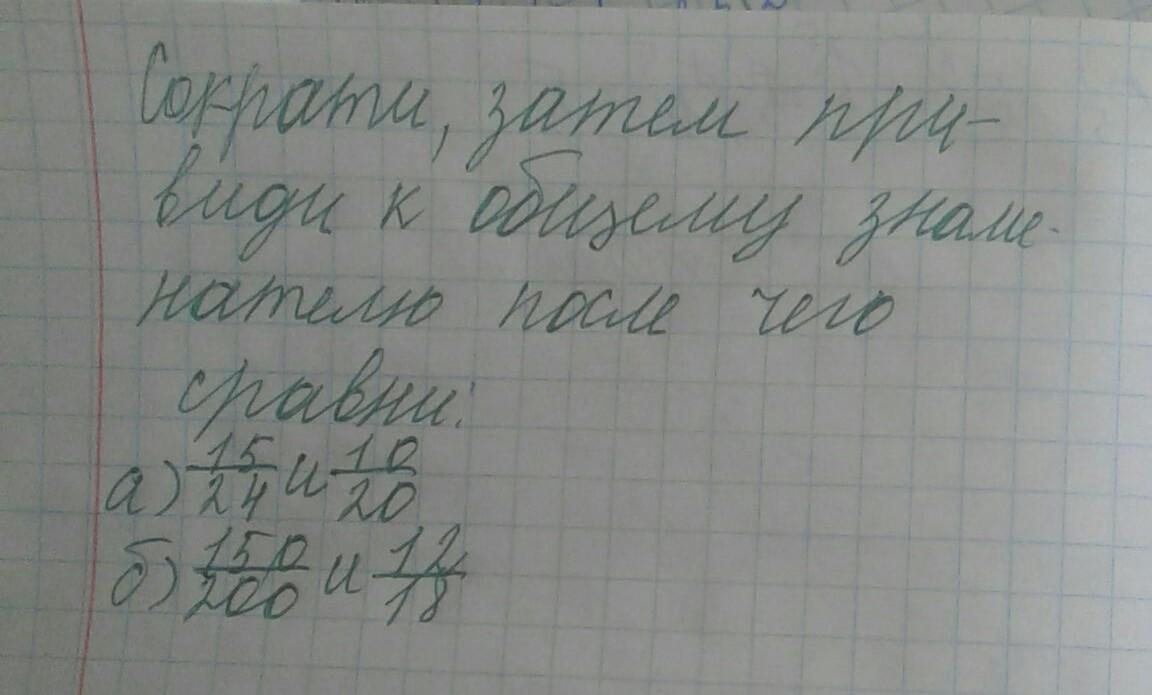 Сократи, затем при-
види к общему знаме-
нателю после чего
сравни:
а) 15/24 и 10/20
б) 150/200 и 12/18